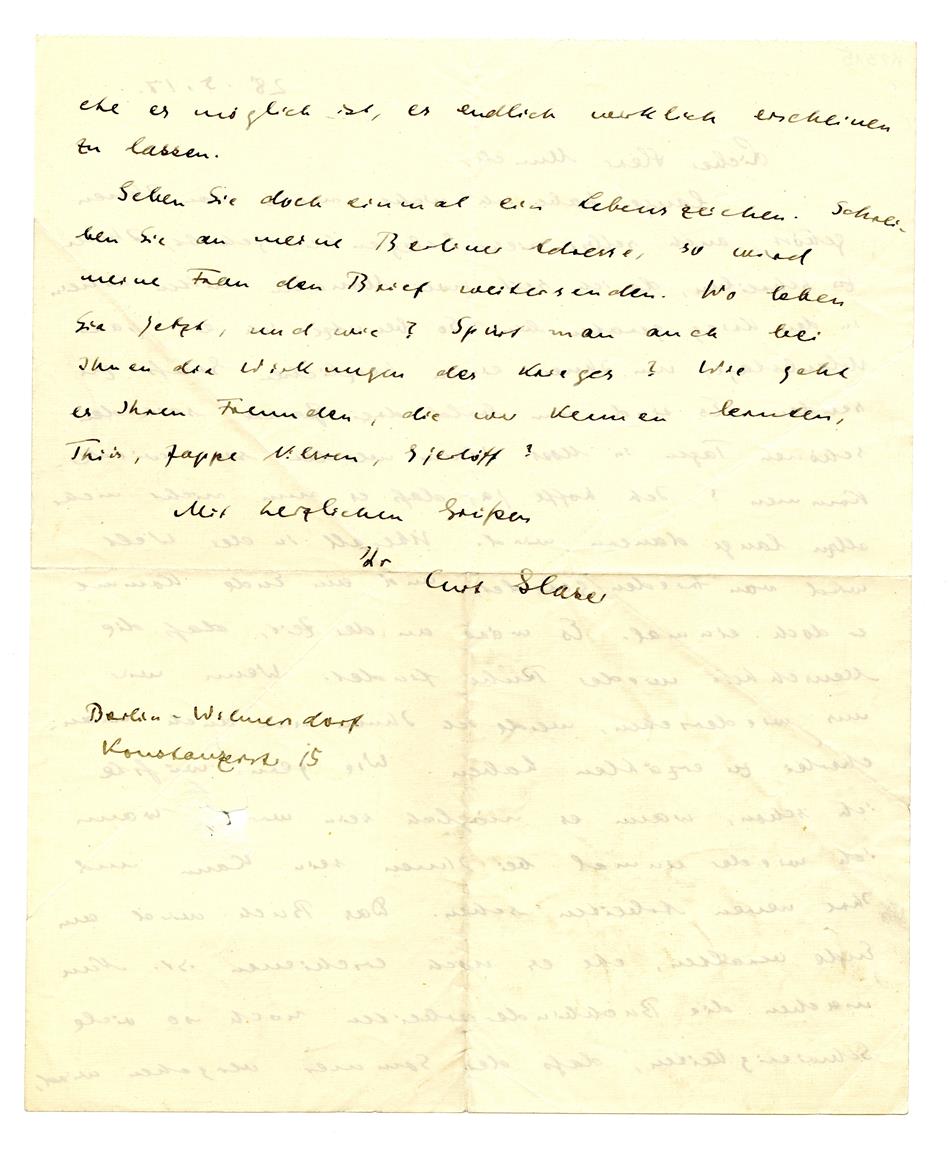 ehe es möglich ist, es endlich wirklich erscheinen
zu lassen.
Geben Sie doch einmal ein Lebenszeichen. Schrei-
ben Sie an meine Berliner Adresse, so wird
meine Frau den Brief weitersenden. Wo leben
Sie jetzt, und wie? Spürt man auch bei
Ihnen die Wirkungen des Krieges? Wie geht
es Ihren Freunden, die wir kennen lernten,
Thiis, Jappe Nilssen, Gierlöff?
Mit herzlichen Grüßen
Ihr
Curt Glaser
Berlin-Wilmersdorf
Konstanzerstr 15